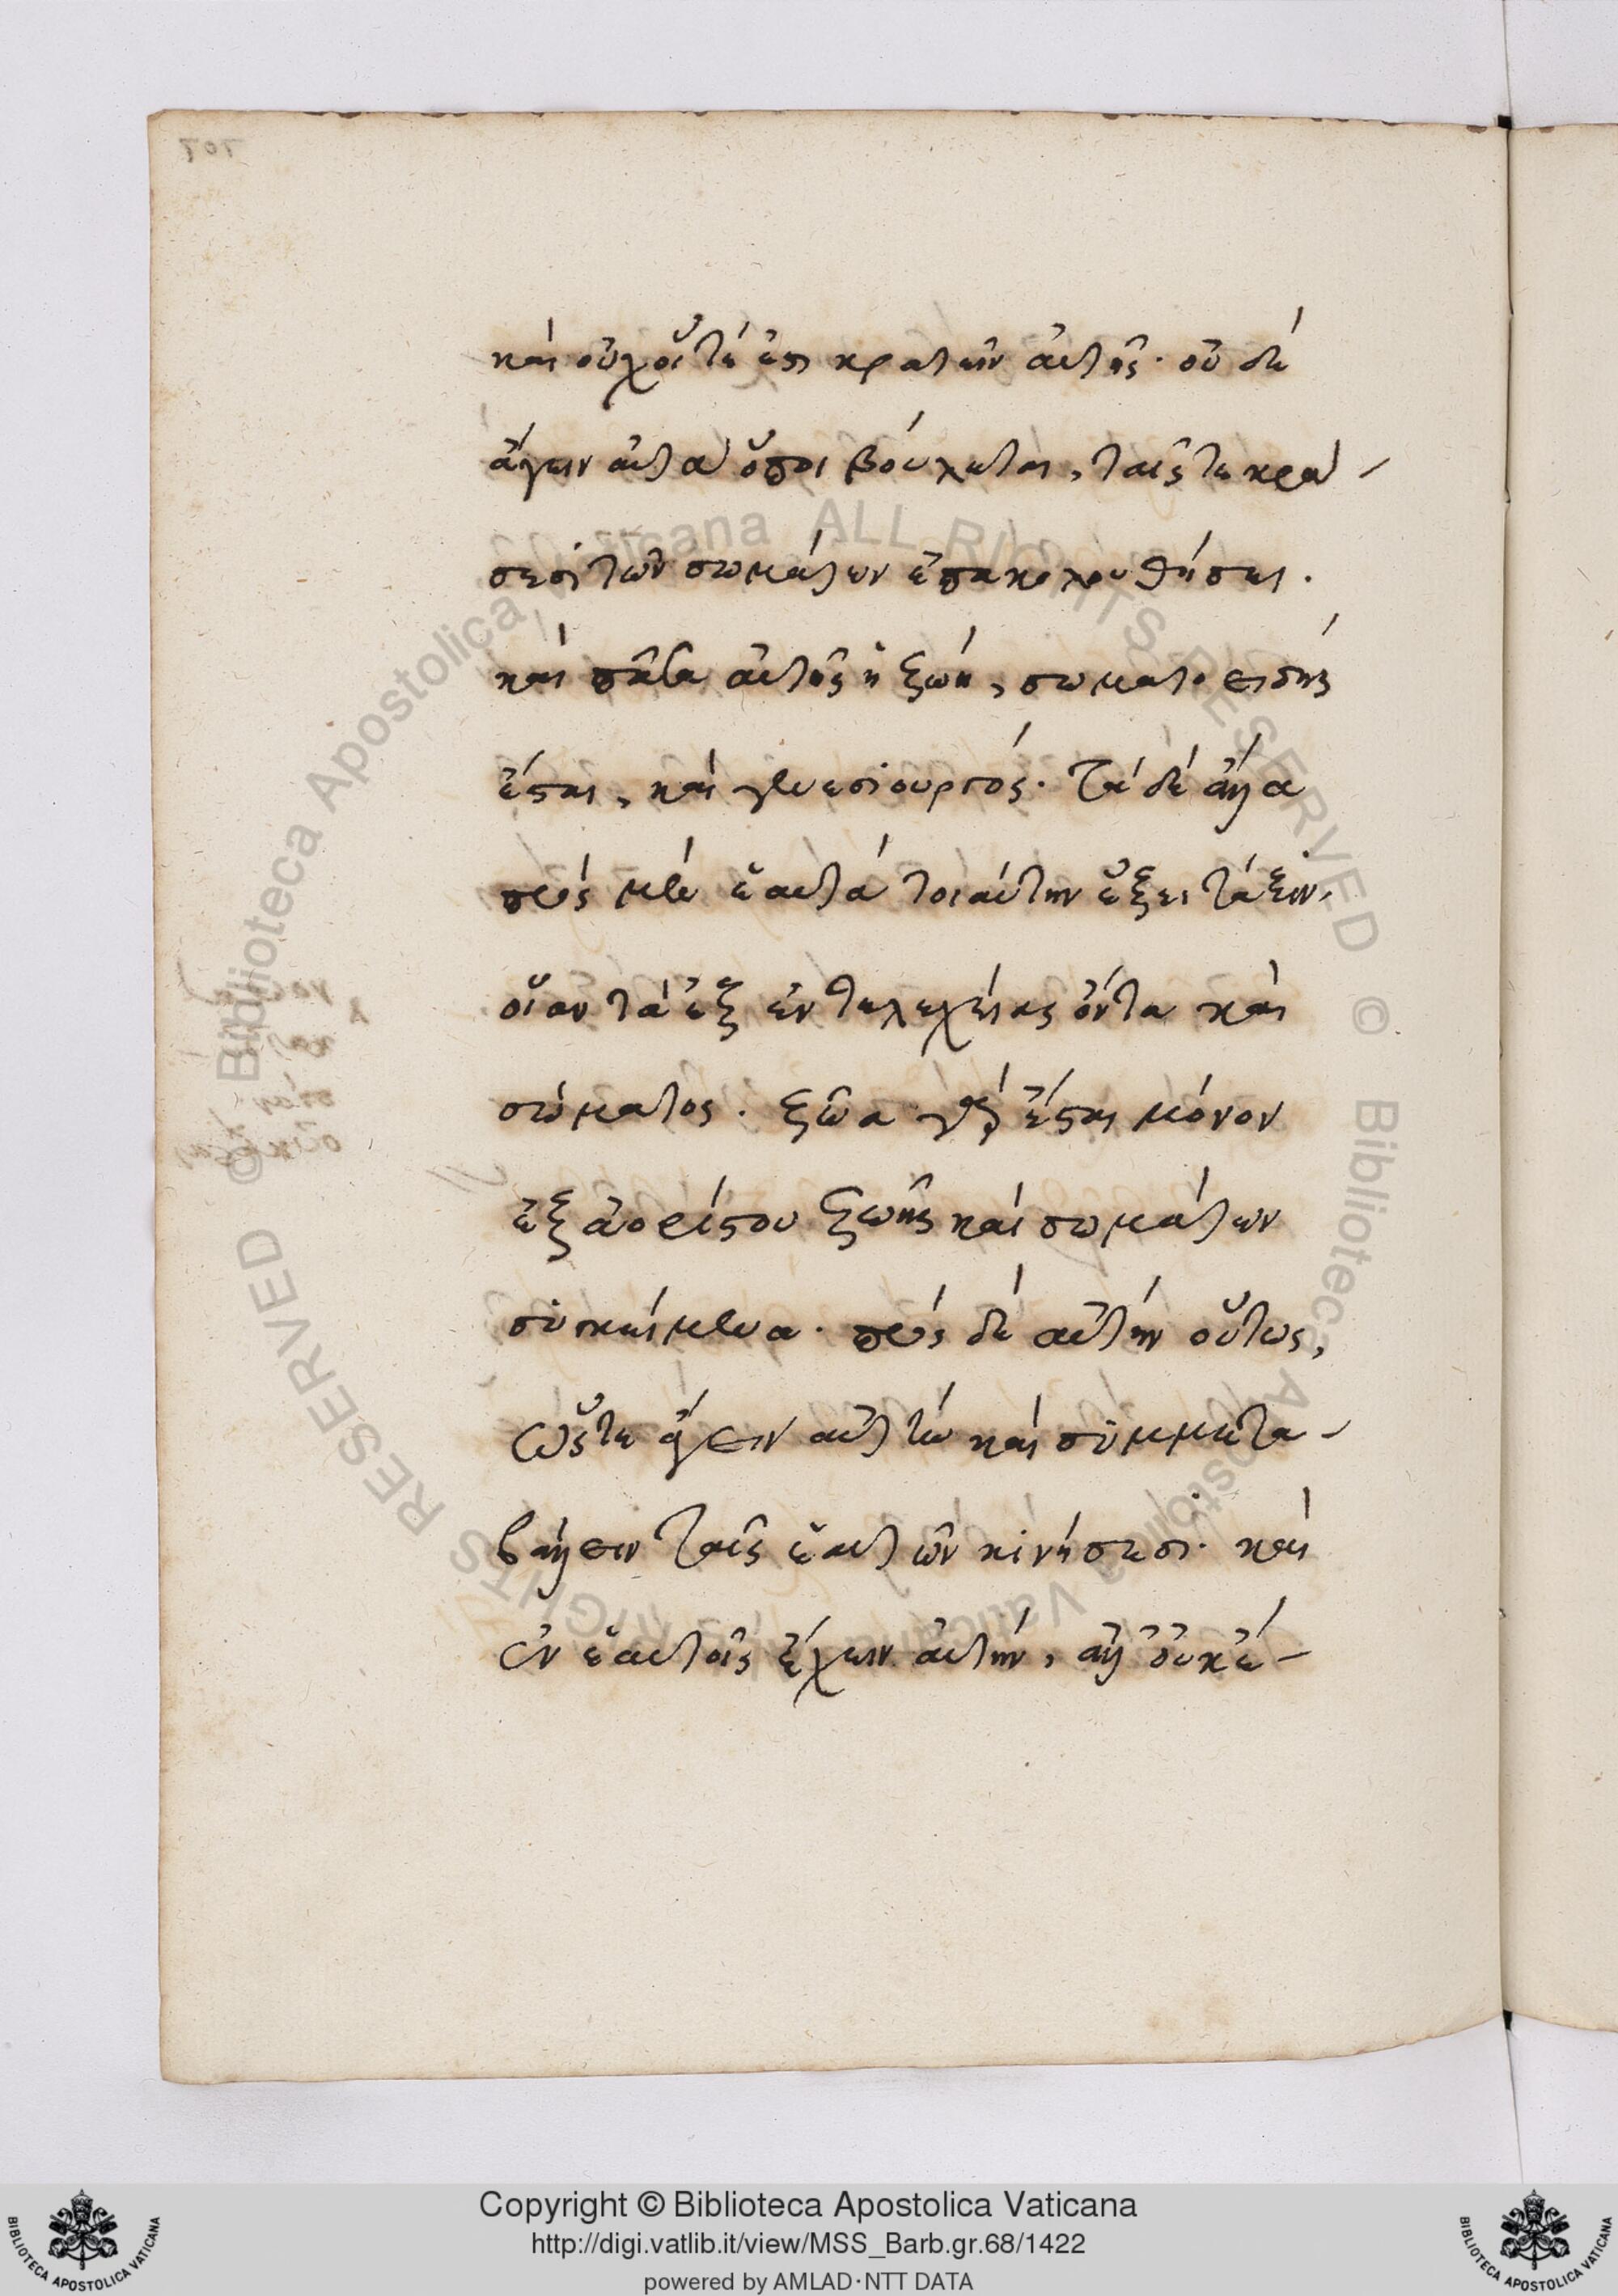 καὶ οὐχ οἵα τέ ἐστι κρατεῖν αὐτῆς· οὐδὲ
ἄγειν αὐτὰ ὅποι βούλεται, ταῖς τε κρά-
σεσι τῶν σωμάτων ἐπακολουθήσει.
καὶ πᾶσα αὐτῆς ἡ ζωὴ, σωματοειδὴς
ἔσται, καὶ γενεσιουργός. τὰ δὲ ἄλλα
πρὸς μὲν ἑαυτὰ τοιαύτην ἕξει τάξιν,
οἵαν τὰ ἐξ ἐντελεχείας ὄντα καὶ
σώματος. ζῶα γὰρ ἔσται μόνον
ἐξ ἀορίστου ζωῆς καὶ σωμάτων
συγκείμενα. πρὸς δὲ αὐτὴν οὕτως,
ὥστε ἄγειν αὐτὴν καὶ συμμετα-
βάλλειν ταῖς ἑαυτῶν κινήσεσι. καὶ
ἐν ἑαυτοῖς ἔχειν αὐτὴν, ἀλλ' οὐκ ἐ-
Copyright © Biblioteca Apostolica Vaticana
http://digi.vatlib.it/view/MSS_Barb.gr.68/1422
powered by AMLAD·NTT DATA
BIBLIOTECA APOSTOLICA VATICANA
BIBLIOTECA APOSTOLICA VATICANA
© Biblioteca Apostolica Vaticana ALL RIGHTS RESERVED
© Biblioteca Apostolica Vaticana ALL RIGHTS RESERVED